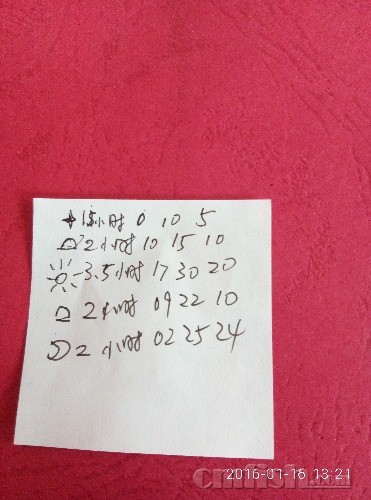 1.5小时 0 10 5
2小时 10 15 10
3.5小时 17 30 20
2小时 09 22 10
2小时 02 25 24
2016-01-16 13:21
cnfish.com